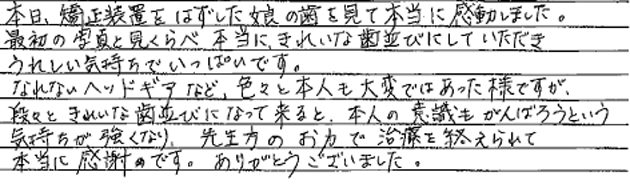 本日、矯正装置をはずした娘の歯を見て本当に感動しました。
最初の写真と見くらべ本当に、きれいな歯並びにしていただき
うれしい気持ちでいっぱいです。
なれないヘッドギアなど、色々と本人も大変ではあった様ですが、
段々ときれいな歯並びになって来ると、本人の意識もがんばろうという
気持ちが強くなり、先生方のお力で治療を終えられて
本当に感謝のです。ありがとうございました。